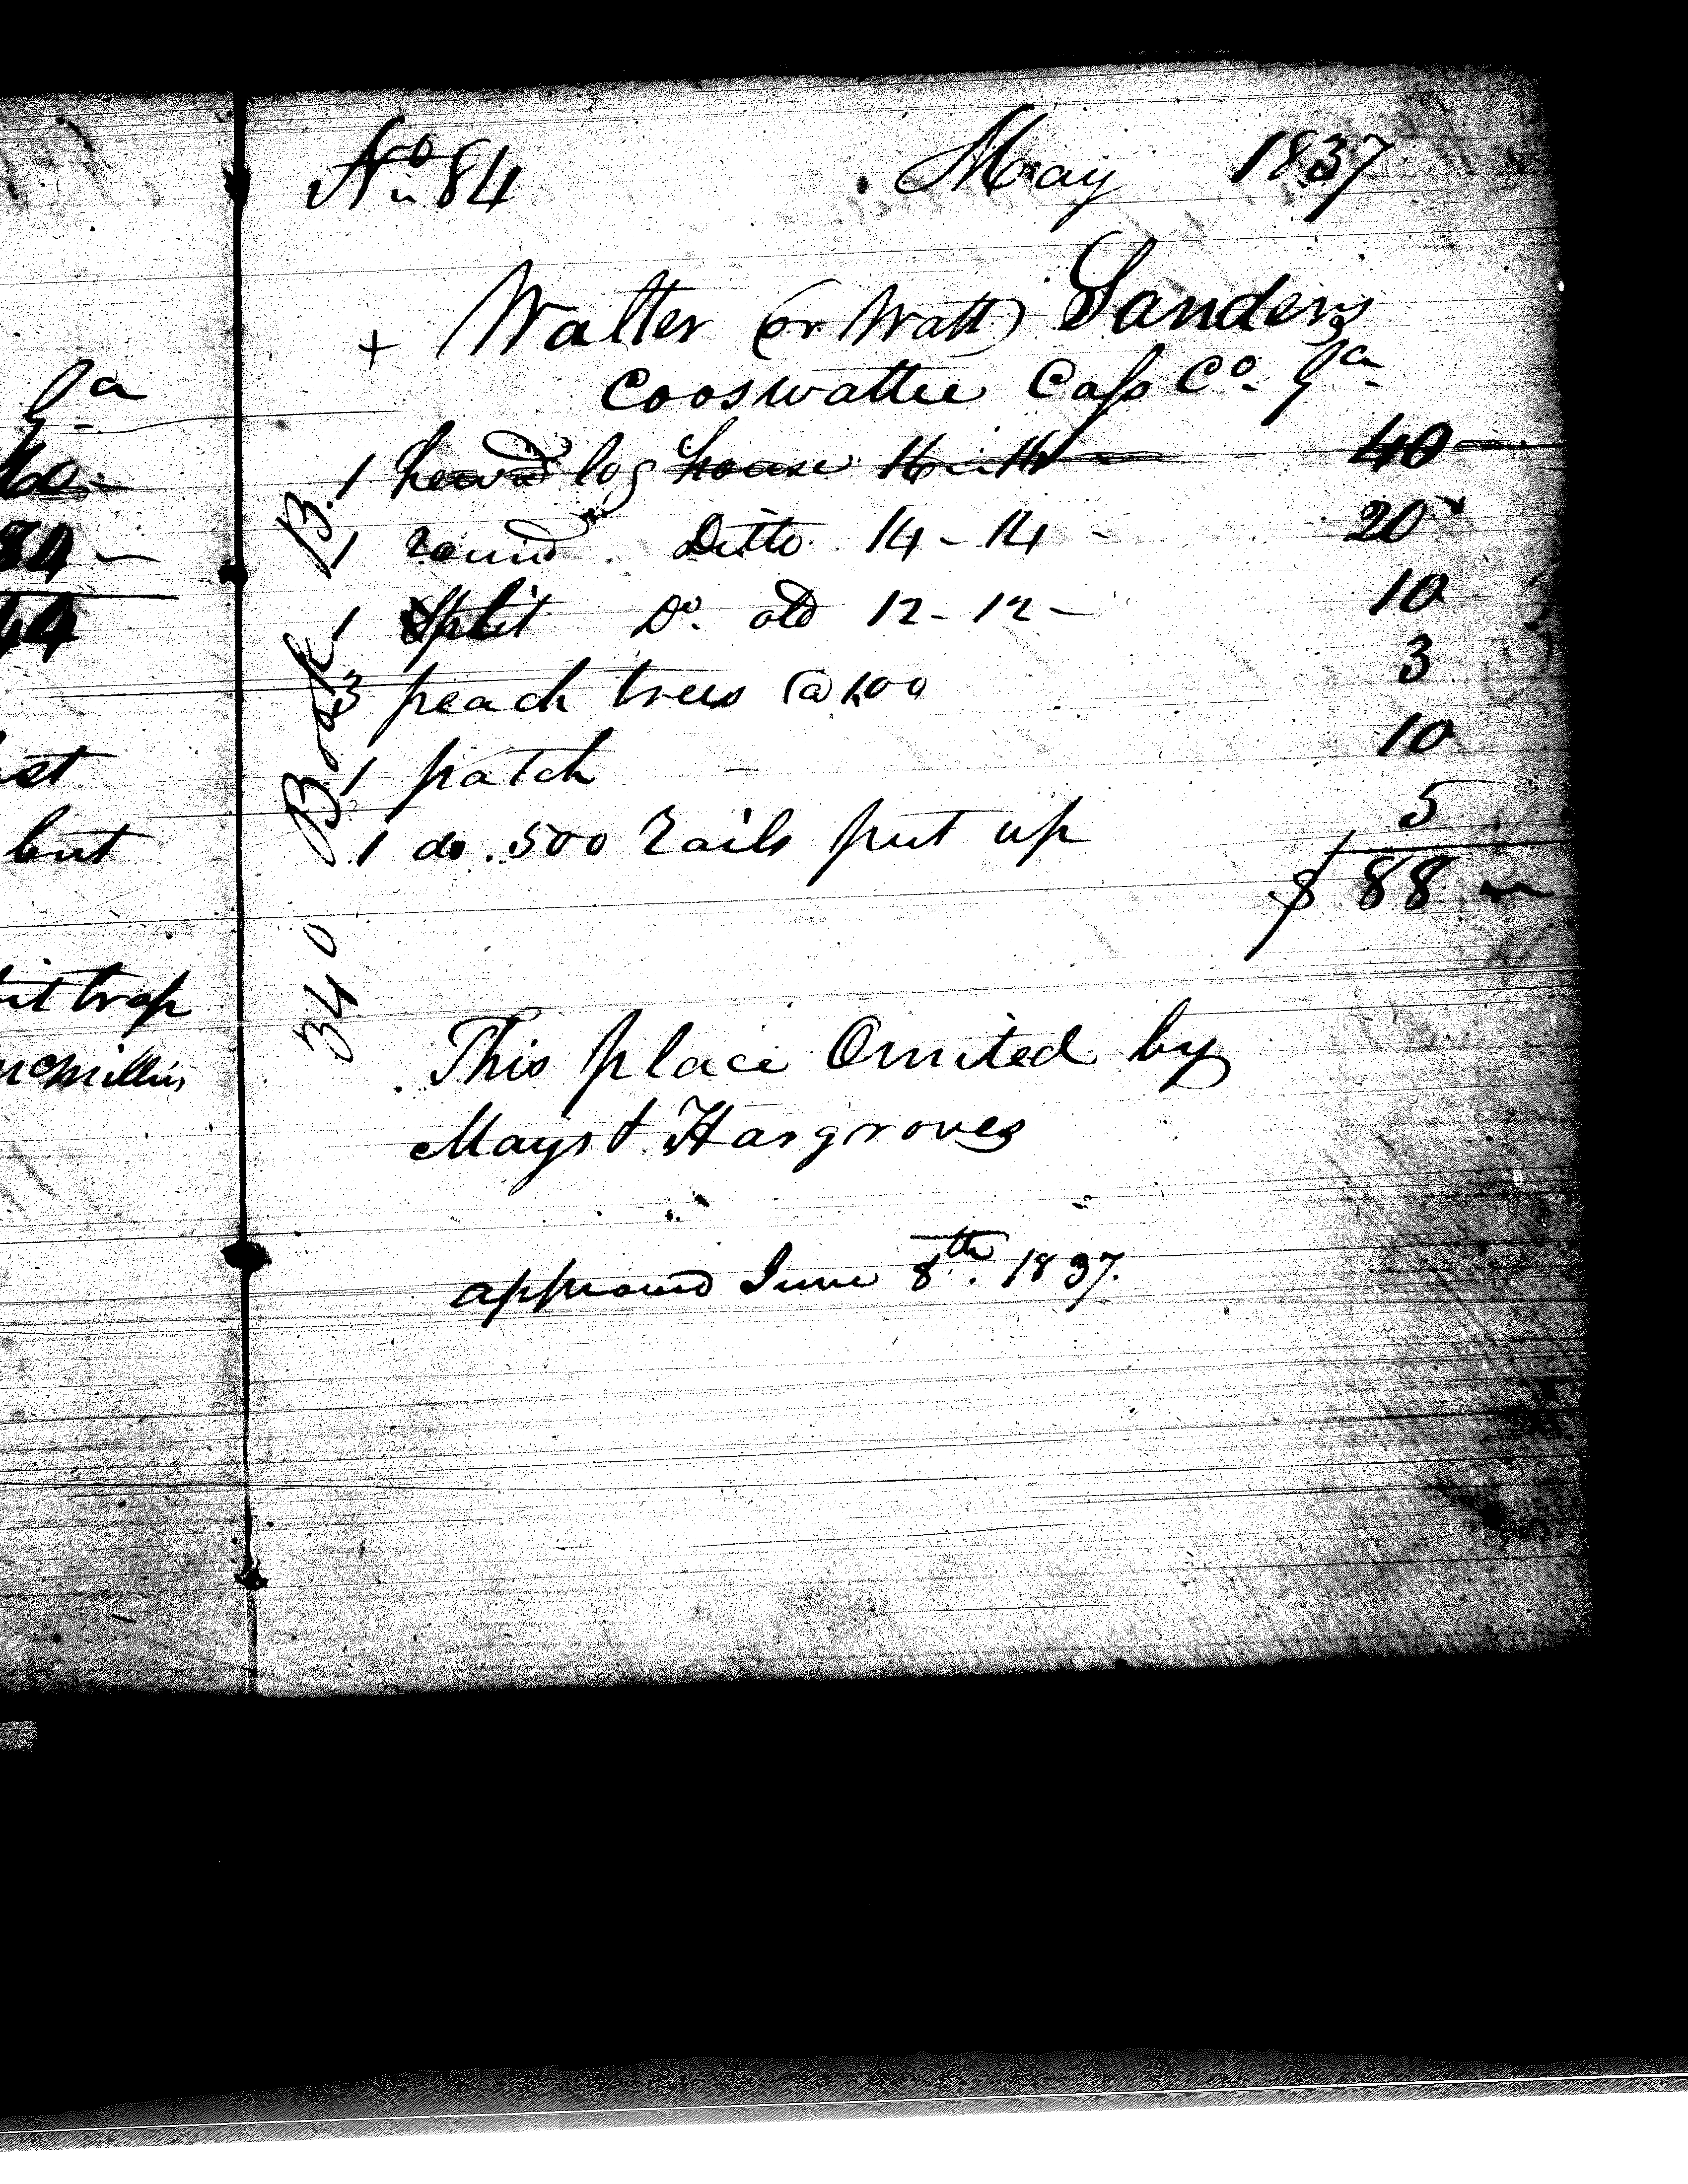 Ga
60
84
44
st
but
trap
McMillin
No 84 May 1837
+ Walter (or Watt) Sanders
Cooswattee Cass Co. Ga
1 hewd log house 16 - 14 40
1 round Ditto 14 - 14 - 20
1 Split Do. old 12 - 12 - 10
3 peach trees @ 100 3
1 patch - 10
1 do. 500 rails put up 5
$ 88
340 Book B.
This place Omited by
Mays & Hargroves
approved June 8th. 1837.